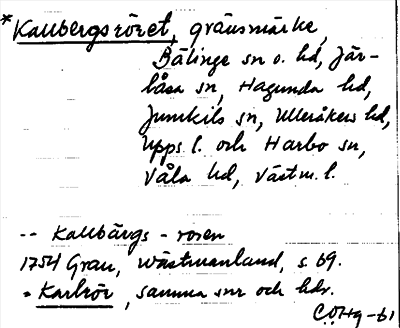 *Kallbergsröret, gränsmärke,
Bälinge sn o. hd, Jär-
låsa sn, Hagunda hd,
Jumkils sn, Ulleråkers hd,
Upps. l. och Harbo sn,
Våla hd, Västm. l.
-- Kallbärgs-rosen
1754 Grau, Wästmanland, s. 69.
= Karlrör, samma snr och hdr.
C.O:Hg-61